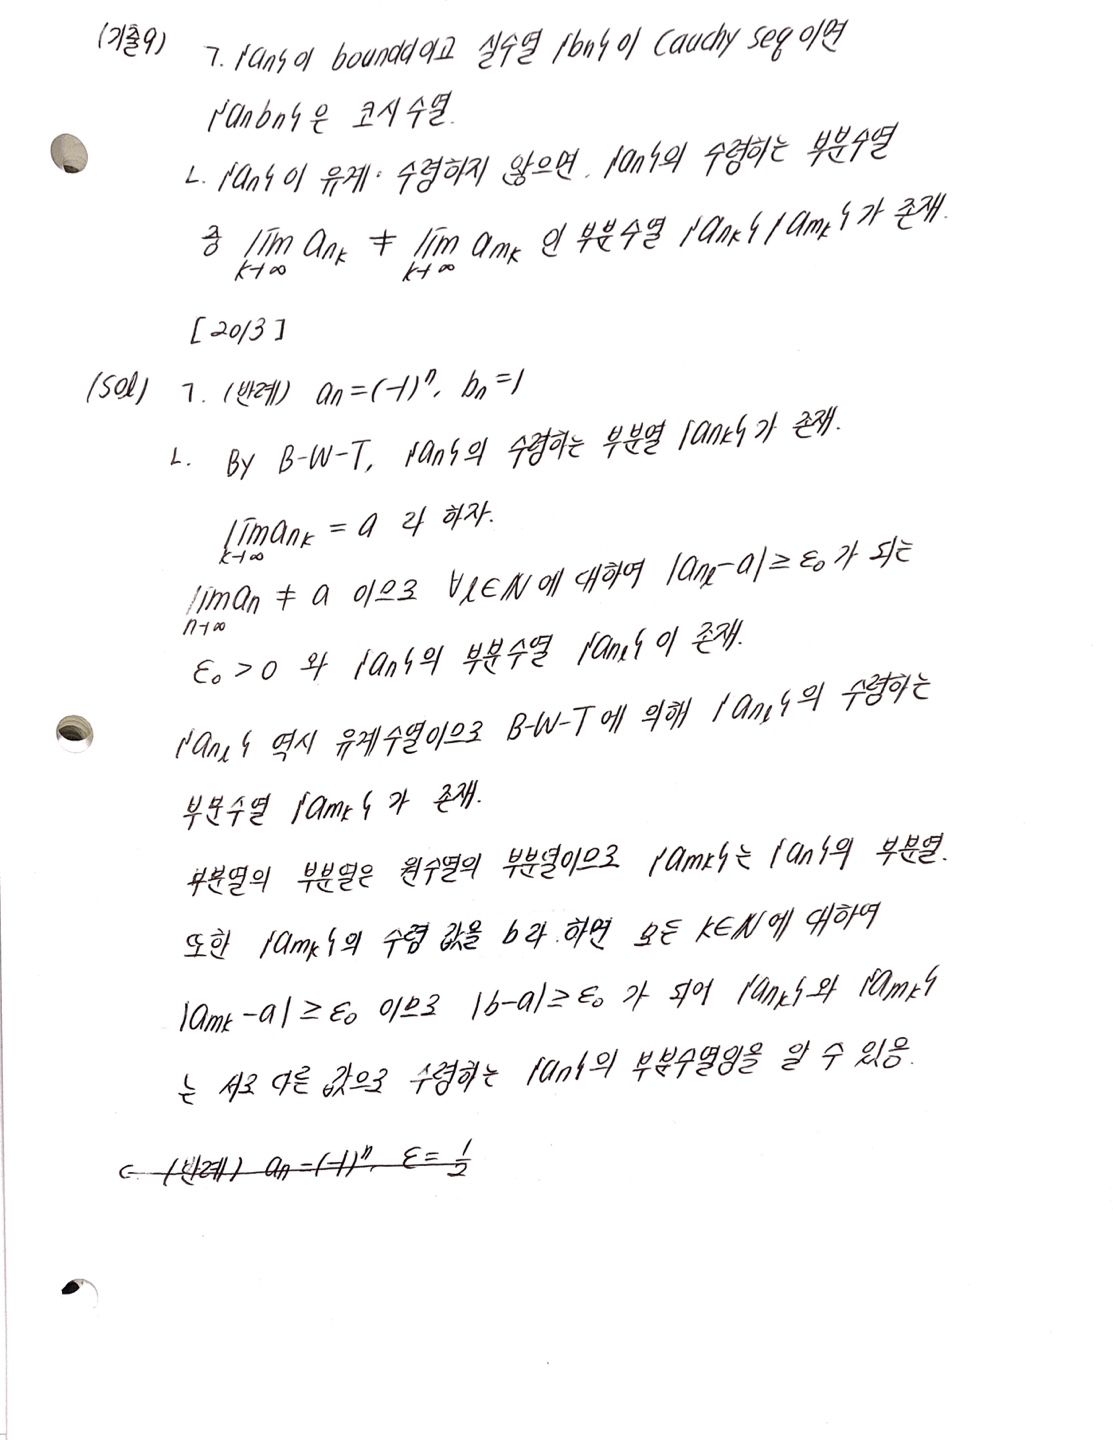 (기출9) ㄱ. {an}이 boundd이고 실수열 {bn}이 Cauchy seq이면
{anbn}은 코시수열.
ㄴ. {an}이 유계·수렴하지 않으면. {an}의 수렴하는 부분수열
중 lim_{k→∞} a_{nk} ≠ lim_{k→∞} a_{mk} 인 부분수열 {a_{nk}}, {a_{mk}}가 존재.
[2013]
(sol) ㄱ. (반례) an=(-1)^n, bn=1
ㄴ. By B-W-T, {an}의 수렴하는 부분열 {a_{nk}}가 존재.
lim_{k→∞} a_{nk} = a 라 하자.
lim_{n→∞} an ≠ a 이므로 ∀l∈N에 대하여 |a_{nl}-a|≥ε₀가 되는
ε₀>0 와 {an}의 부분수열 {a_{nl}}이 존재.
{a_{nl}} 역시 유계수열이므로 B-W-T에 의해 {a_{nl}}의 수렴하는
부분수열 {a_{mk}}가 존재.
부분열의 부분열은 원수열의 부분열이므로 {a_{mk}}는 {an}의 부분열.
또한 {a_{mk}}의 수렴 값을 b라 하면 모든 k∈N에 대하여
|a_{mk}-a|≥ε₀ 이므로 |b-a|≥ε₀ 가 되어 {a_{nk}}와 {a_{mk}}
는 서로 다른 값으로 수렴하는 {an}의 부분수열임을 알 수 있음.
ㄷ. (반례) an=(-1)^n, ε=1/2